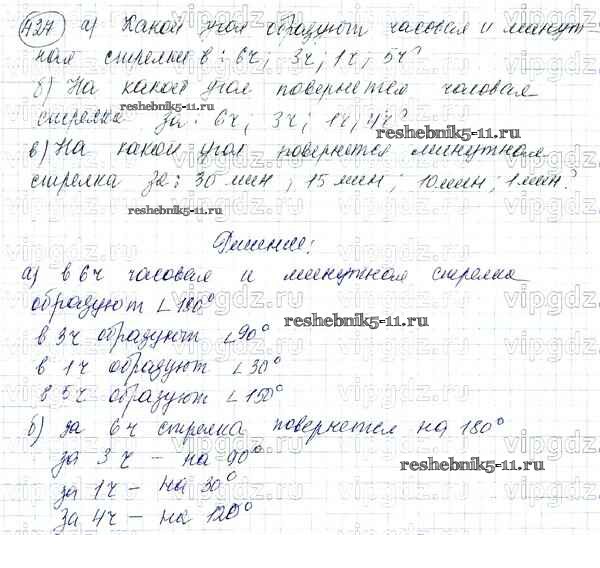 427 а) Какой угол образуют часовая и минут
ная стрелки в: 6ч; 3ч; 1ч; 5ч?
б) На какой угол повернется часовая
стрелка за: 6ч; 3ч; 1ч; 4ч?
в) На какой угол повернется минутная
стрелка за: 30 мин; 15 мин; 10 мин; 1 мин?
Решение:
а) в 6ч часовая и минутная стрелка
образуют ∠180°
в 3ч образуют ∠90°
в 1ч образуют ∠30°
в 5ч образуют ∠150°
б) за 6ч стрелка повернется на 180°
за 3ч – на 90°
за 1ч – на 30°
за 4ч – на 120°
reshebnik5-11.ru
reshebnik5-11.ru
reshebnik5-11.ru
reshebnik5-11.ru
reshebnik5-11.ru
vipgdz.ru